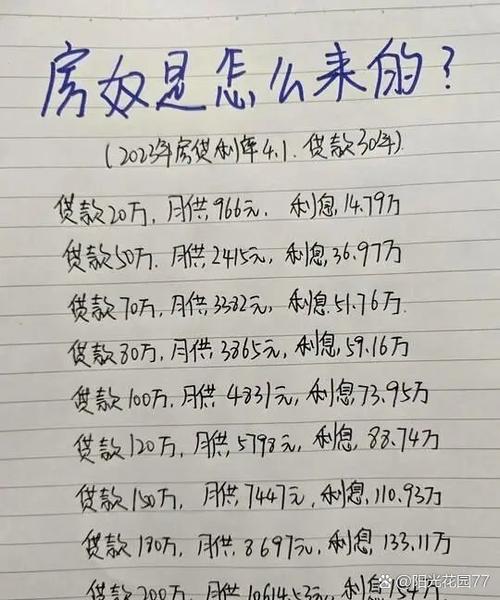 房奴是怎么来的?
(2023年房贷利率4.1.贷款30年)
贷款20万,月供,966元,利息,14.79万
贷款50万.月供,2415元,利息,36.97万
贷款70万,月供,3382元,利息,51.76万.
贷款80万,月供,3865元,利息,59.16万
贷款100万,月供4831元,利息,73.95万
贷款120万,月供,5798元,利息,88.74万
贷款150万,月供,7447元,利息,110.93万
贷款180万,月供,8697元,利息,133.11万
贷款200万,月供,10614.53元,利息,154万
头条 @阳光花园77